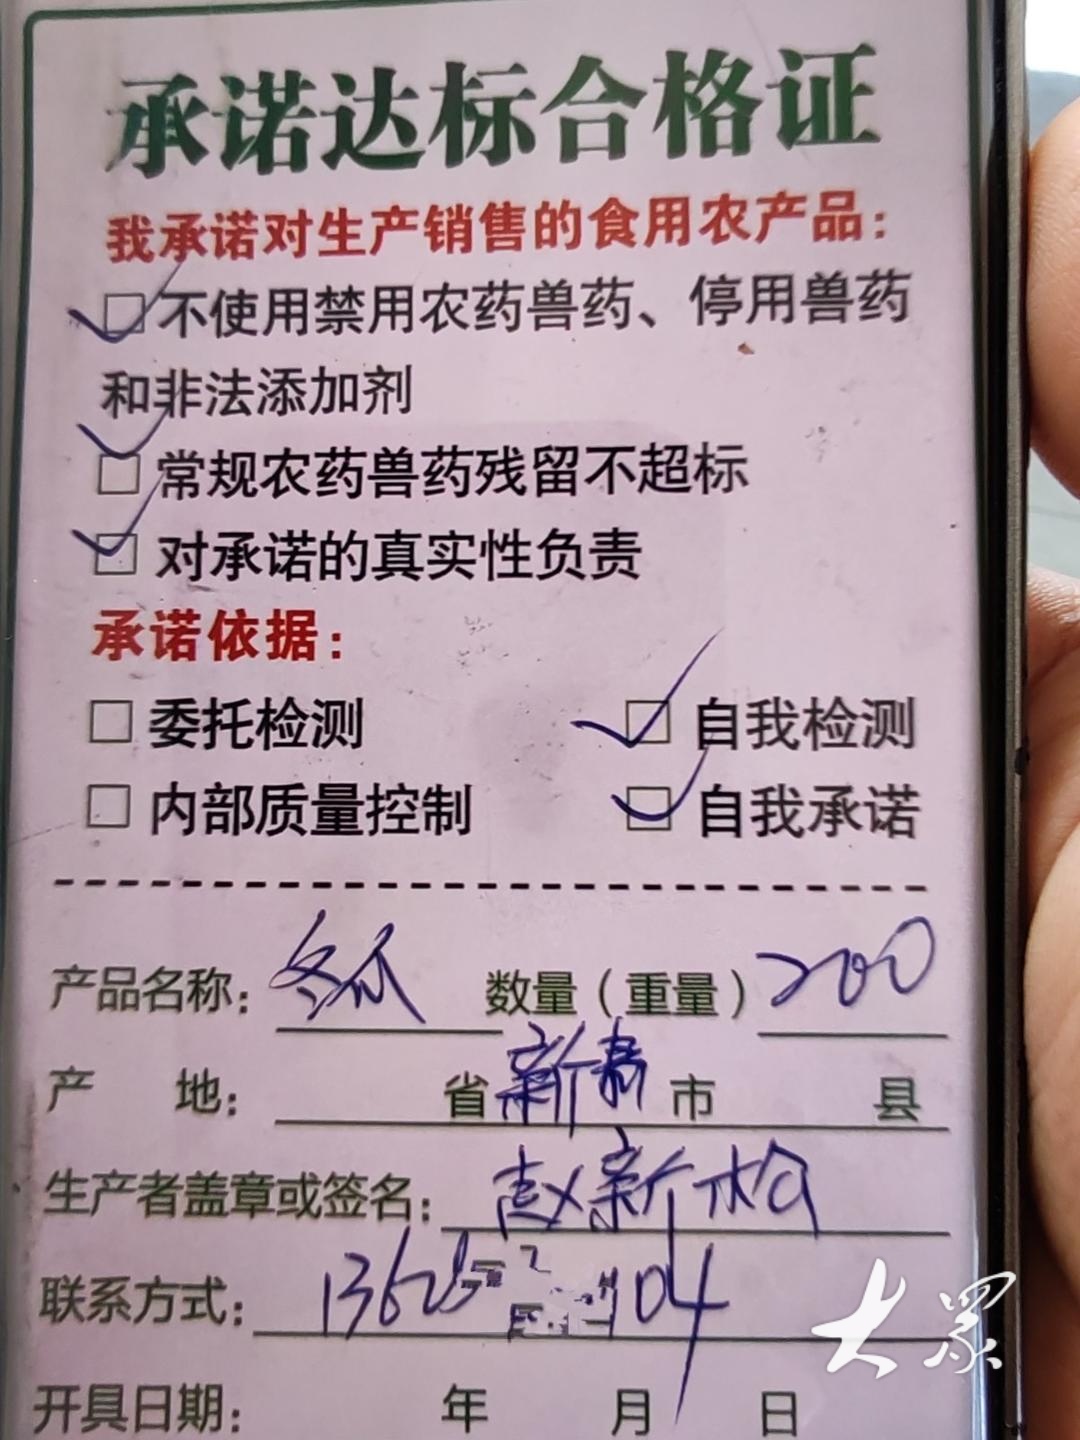 承诺达标合格证
我承诺对生产销售的食用农产品:
□不使用禁用农药兽药、停用兽药
和非法添加剂
□常规农药兽药残留不超标
□对承诺的真实性负责
承诺依据:
□委托检测 □自我检测
□内部质量控制 □自我承诺
产品名称:冬瓜 数量(重量)200
产 地: 省新 市 县
生产者盖章或签名:赵新松
联系方式: 104
开具日期: 年 月 日
大众